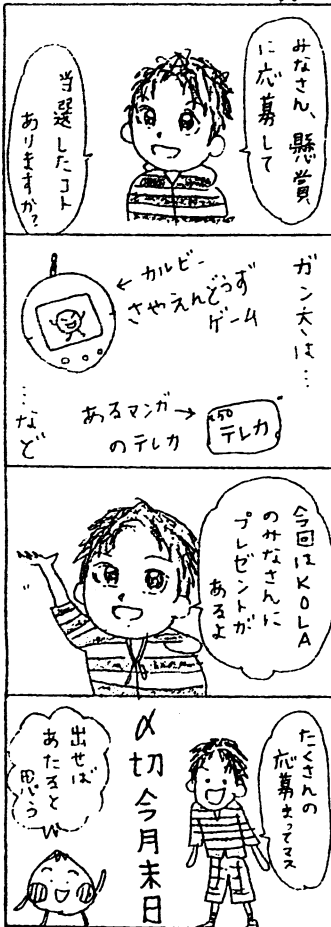 みなさん、懸賞
に応募して
当選したコト
ありますか?
ガン太は…
←カルビー
さやえんどうず
ゲーム
あるマンガ→
のテレカ
50
テレカ
…など
今回はKOLA
のみなさんに
プレゼントが
あるよ
たくさんの
応募まってマス
〆切今月末日
出せば
あたると
思う